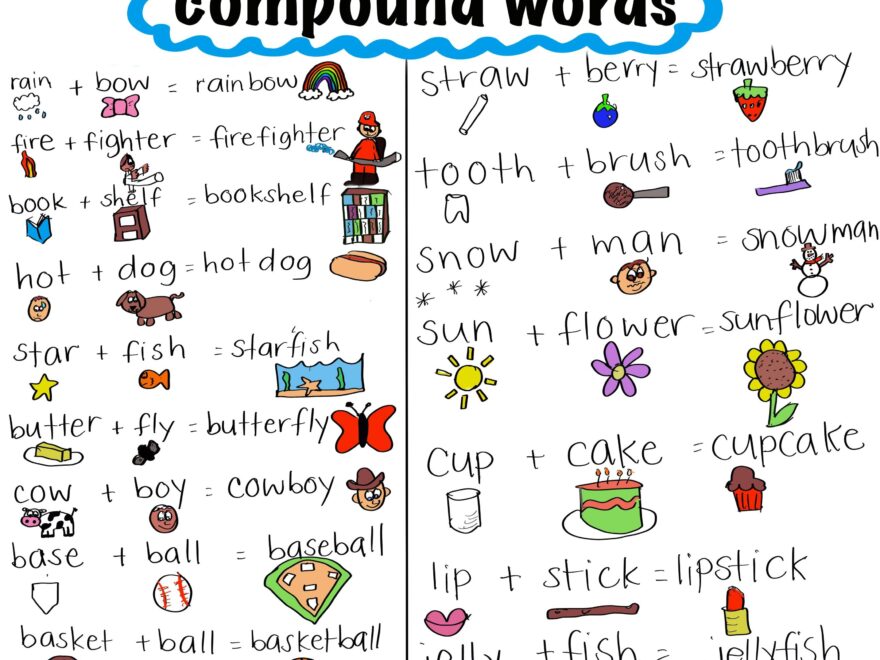 compound words
rain + bow = rainbow
fire + fighter = firefighter
book + shelf = bookshelf
hot + dog = hot dog
star + fish = starfish
butter + fly = butterfly
cow + boy = cowboy
base + ball = baseball
basket + ball = basketball
straw + berry = strawberry
tooth + brush = toothbrush
snow + man = snowman
sun + flower = sunflower
cup + cake = cupcake
lip + stick = lipstick
jelly + fish = jellyfish